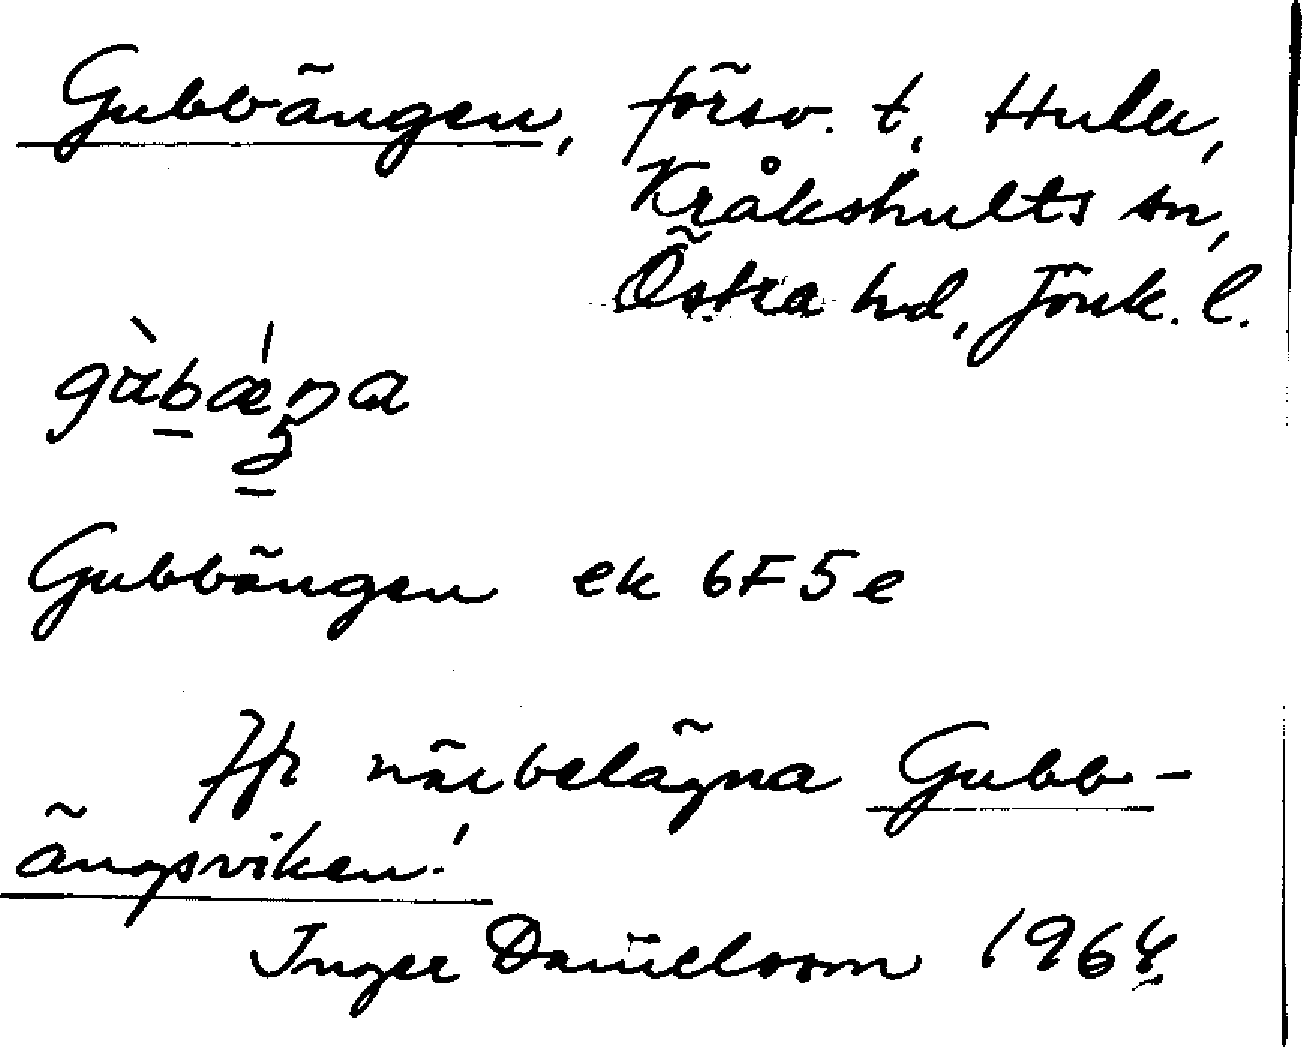 Gubbängen, försv. t. Hulu,
Kråkshults sn,
Östra hd, Jönk. l.
gùbǽŋa
Gubbängen ek 6F5e
Jfr närbelägna Gubb-
ängsviken!
Inger Danielsson 1964